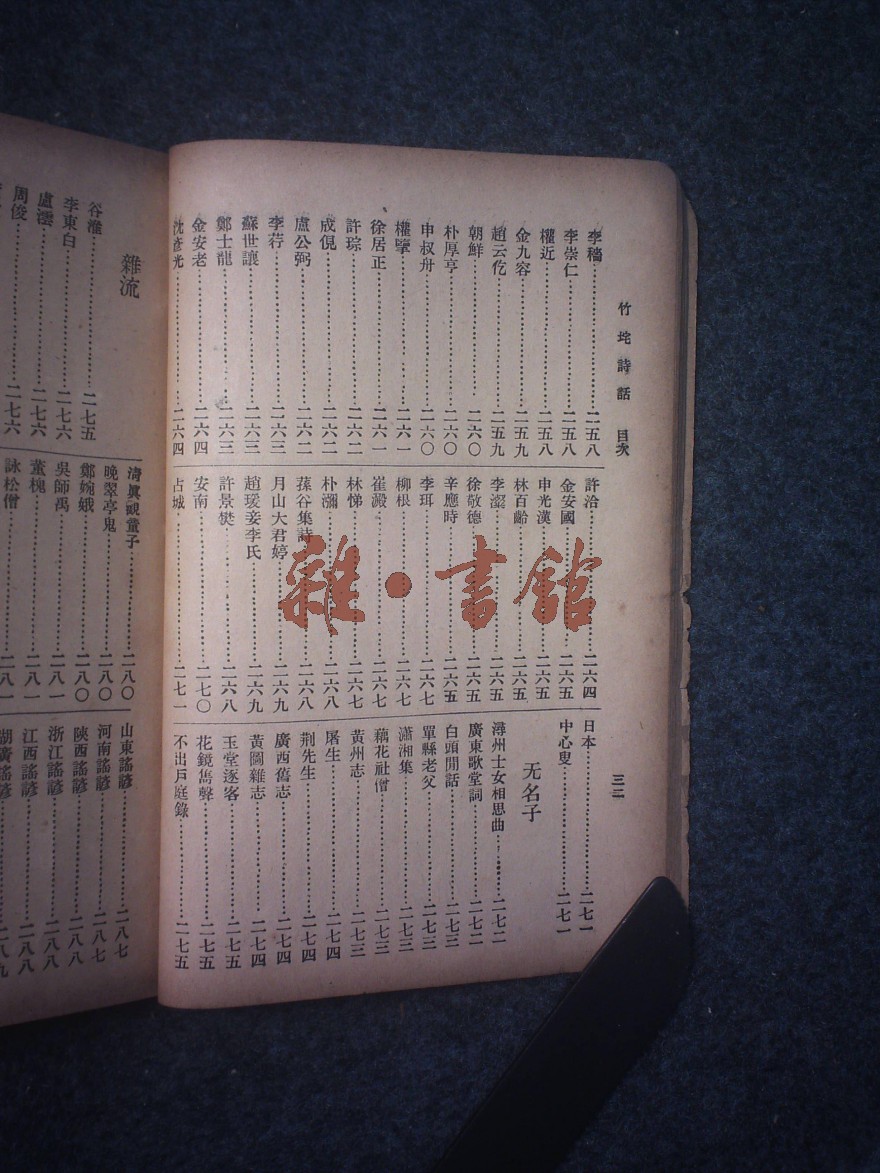 竹垞詩話 目次
三二
李穡……二五八
李崇仁……二五八
權近……二五八
金九容……二五九
趙云仡……二五九
朝鮮……二六〇
朴厚亨……二六〇
申叔舟……二六〇
權擥……二六一
徐居正……二六一
許琮……二六二
成俔……二六二
盧公弼……二六二
李荇……二六三
蘇世讓……二六三
鄭士龍……二六三
金安老……二六四
沈彥光……二六四
許洽……二六四
金安國……二六五
申光漢……二六五
林百齡……二六五
李澯……二六五
徐敬德……二六五
辛應時……二六五
李珥……二六七
柳根……二六七
崔澱……二六七
林悌……二六七
朴瀰……二六八
葆谷集詩……二六八
月山大君婷……二六九
趙瑗妾李氏……二六九
許景樊……二六八
安南……二七〇
占城……二七一
日本……二七一
中心叟……二七一
无名子
潯州士女相思曲……二七二
廣東歌堂詞……二七二
白頭閒話……二七三
單縣老父……二七三
瀟湘集……二七三
藕花社僧……二七三
黃州志……二七三
屠生……二七四
荆先生……二七四
廣西舊志……二七四
黃圖雜志……二七四
玉堂逐客……二七五
花鏡雋聲……二七五
不出戶庭錄……二七五
雜流
谷淮……二七五
李東白……二七六
盧澐……二七六
周俊……二七六
清眞觀童子……二八〇
晚翠亭鬼……二八〇
鄭婉娥……二八〇
吳師禹……二八一
董槐……二八一
詠松僧……二八一
山東謠諺……二八七
河南謠諺……二八七
陝西謠諺……二八八
浙江謠諺……二八八
江西謠諺……二八八
湖廣謠諺……二八九
雜·書館